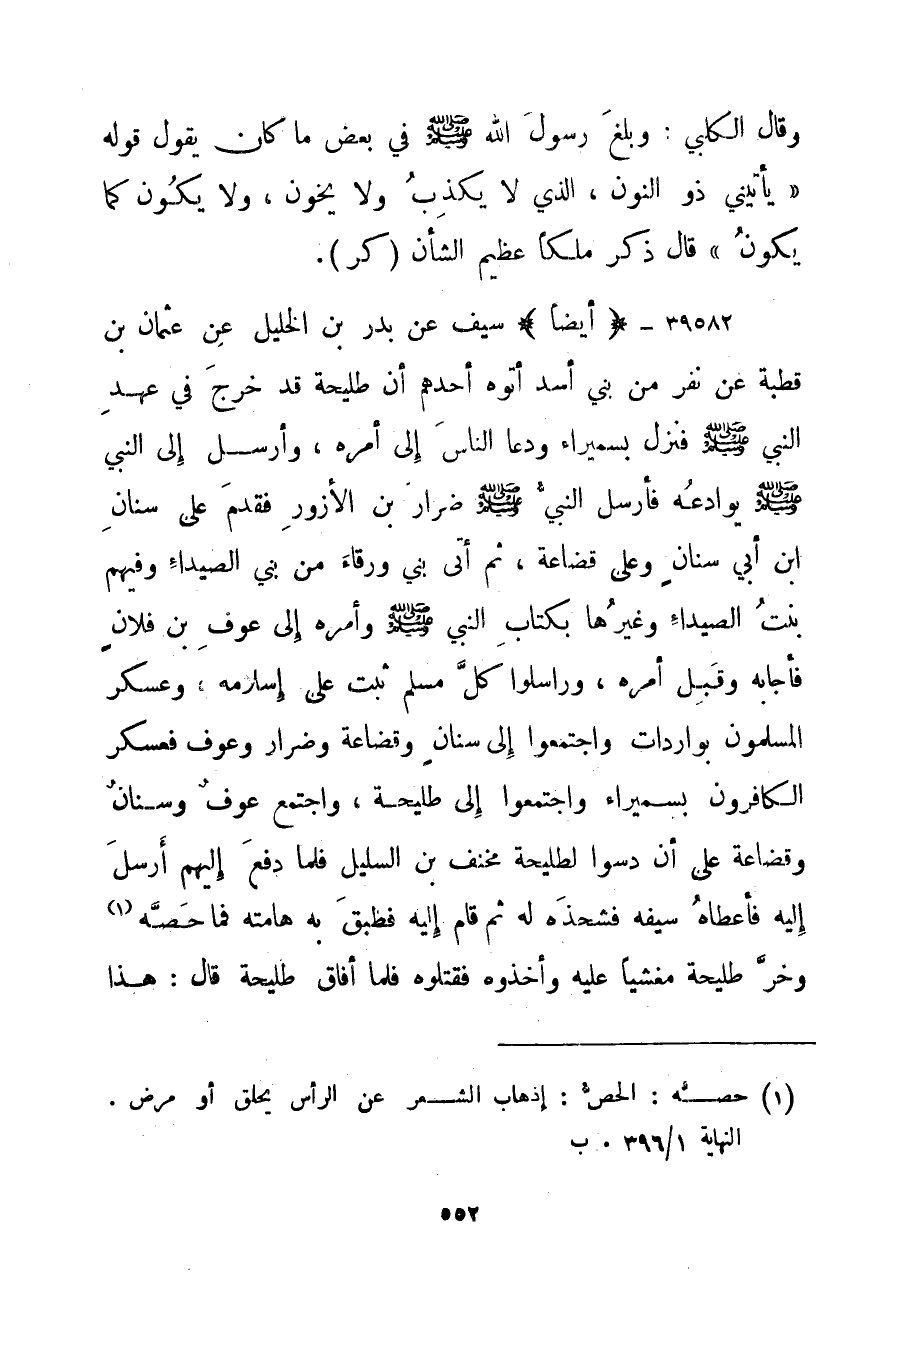 وقال الكلبي : وبلغَ رسولَ الله ﷺ في بعض ما كان يقول قوله
« يأتيني ذو النون ، الذي لا يكذبُ ولا يخون ، ولا يكُون كما
يكونُ » قال ذكر ملكاً عظيم الشأن (كر).
٣٩٥٨٢ - ﴿ أيضاً ﴾ سيف عن بدر بن الخليل عن عثمان بن
قطبة عن نفر من بني أسد أتوه أحدهم أن طليحة قد خرجَ في عهدِ
النبي ﷺ فنزل بسميراء ودعا الناسَ إلى أمره ، وأرسل إلى النبي
ﷺ يوادعُه فأرسل النبيُّ ﷺ ضرارَ بن الأزورِ فقدمَ على سنانِ
ابن أبي سنانٍ وعلى قضاعة ، ثم أتى بني ورقاءَ من بني الصيداءِ وفيهم
بنتُ الصيداءِ وغيرُها بكتابِ النبي ﷺ وأمره إلى عوفِ بن فلانٍ
فأجابه وقَبِل أمره ، وراسلوا كلَّ مسلم ثبت على إسلامه ، وعسكر
المسلمون بواردات واجتمعوا إلى سنانٍ وقضاعة وضرار وعوف فعسكر
الكافرون بسميراء واجتمعوا إلى طليحة ، واجتمع عوفٌ وسنانٌ
وقضاعة على أن دسوا لطليحة مخنف بن السليل فلما دفعَ إليهم أَرسلَ
إليه فأعطاهُ سيفه فشحذَه له ثم قام إليه فطبقَ به هامته فما حَصَّه (١)
وخرَّ طليحة مغشياً عليه وأخذوه فقتلوه فلما أفاق طليحة قال : هذا
(١) حصَّه : الحصُّ : إذهاب الشعر عن الرأس بحلق أو مرض .
النهاية ٣٩٦/١ . ب
٥٥٢